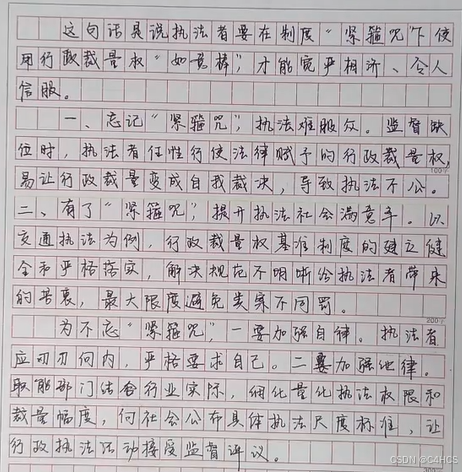 这句话是说执法者要在制度“紧箍咒”下使
用行政裁量权“如意棒”，才能宽严相济、令人
信服。
一、忘记“紧箍咒”，执法难服众。监督缺
位时，执法者任性行使法律赋予的行政裁量权，
易让行政裁量变成自我裁决，导致执法不公。
100字
二、有了“紧箍咒”，提升执法社会满意率。以
交通执法为例，行政裁量权基准制度的建立健
全和严格落实，解决规范不明晰给执法者带来
的苦衷，最大限度避免类案不同罚。
200字
为不忘“紧箍咒”，一要加强自律。执法者
应刀刃向内，严格要求自己。二要加强他律。
职能部门结合行业实际，细化量化执法权限和
裁量幅度，向社会公布具体执法尺度标准，让
行政执法活动接受监督评议。
CSDN @C4HCS